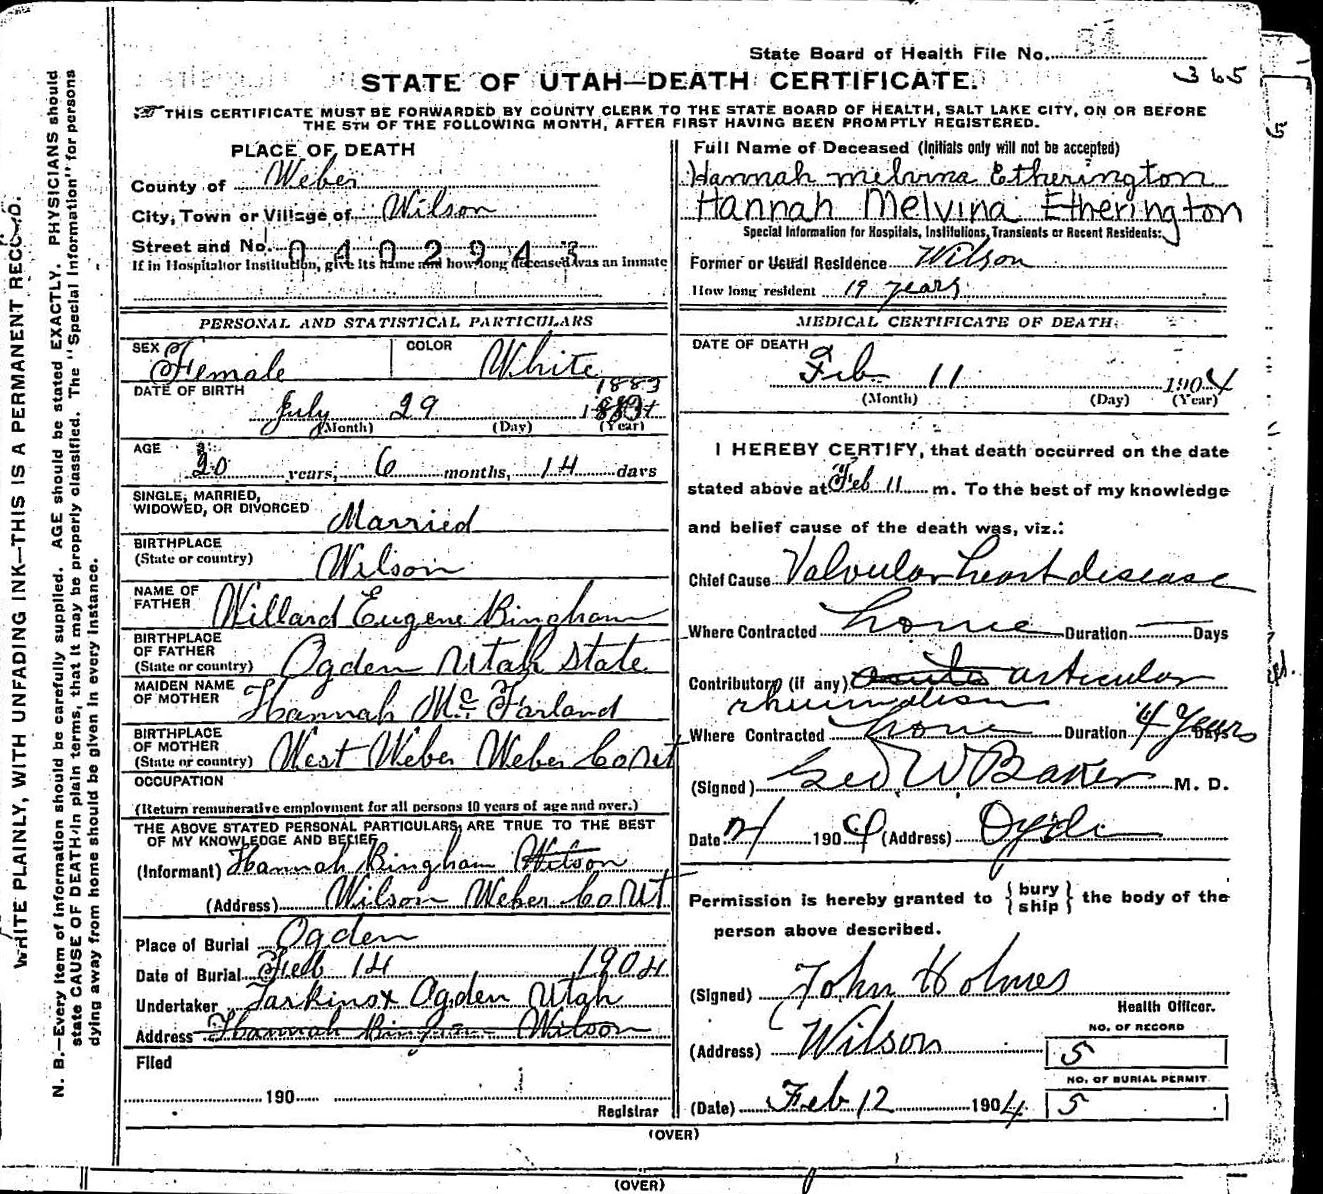 State Board of Health File No. 34
365
STATE OF UTAH—DEATH CERTIFICATE.
THIS CERTIFICATE MUST BE FORWARDED BY COUNTY CLERK TO THE STATE BOARD OF HEALTH, SALT LAKE CITY, ON OR BEFORE
THE 5TH OF THE FOLLOWING MONTH, AFTER FIRST HAVING BEEN PROMPTLY REGISTERED.
WRITE PLAINLY, WITH UNFADING INK—THIS IS A PERMANENT RECORD.
N. B.—Every item of information should be carefully supplied. AGE should be stated EXACTLY. PHYSICIANS should
state CAUSE OF DEATH in plain terms, that it may be properly classified. The "Special Information" for persons
dying away from home should be given in every instance.
PLACE OF DEATH
County of Weber
City, Town or Village of Wilson
Street and No. 0402943
If in Hospital or Institution, give its name and how long deceased was an inmate
PERSONAL AND STATISTICAL PARTICULARS
SEX Female COLOR White
DATE OF BIRTH
1883
July 29
(Month) (Day) (Year)
AGE
20 years, 6 months, 14 days
SINGLE, MARRIED,
WIDOWED, OR DIVORCED Married
BIRTHPLACE
(State or country) Wilson
NAME OF
FATHER Willard Eugene Bingham
BIRTHPLACE
OF FATHER
(State or country) Ogden Utah State
MAIDEN NAME
OF MOTHER Hannah Mc Farland
BIRTHPLACE
OF MOTHER
(State or country) West Weber Weber Co Ut
OCCUPATION
(Return remunerative employment for all persons 10 years of age and over.)
THE ABOVE STATED PERSONAL PARTICULARS ARE TRUE TO THE BEST
OF MY KNOWLEDGE AND BELIEF
(Informant) Hannah Bingham Wilson
(Address) Wilson Weber Co Ut
Place of Burial Ogden
Date of Burial Feb 14 1904
Undertaker Larkinox Ogden Utah
Address Hannah Bingham Wilson
Filed
190
Registrar
Full Name of Deceased (Initials only will not be accepted)
Hannah melvina Etherington
Hannah Melvina Etherington
Special Information for Hospitals, Institutions, Transients or Recent Residents:
Former or Usual Residence Wilson
How long resident 19 years
MEDICAL CERTIFICATE OF DEATH
DATE OF DEATH
Feb 11 1904
(Month) (Day) (Year)
I HEREBY CERTIFY, that death occurred on the date
stated above at Feb 11 m. To the best of my knowledge
and belief cause of the death was, viz.:
Chief Cause Valvular heart disease
Where Contracted home Duration — Days
Contributory (if any) acute articular
rheumatism
Where Contracted home Duration 4 Years Days
(Signed) Geo W Baker M. D.
Date 1904 (Address) Ogden
Permission is hereby granted to { bury
ship } the body of the
person above described.
(Signed) John Holmes
Health Officer.
(Address) Wilson
NO. OF RECORD
5
NO. OF BURIAL PERMIT
5
(Date) Feb 12 1904
(OVER)
(OVER)
5